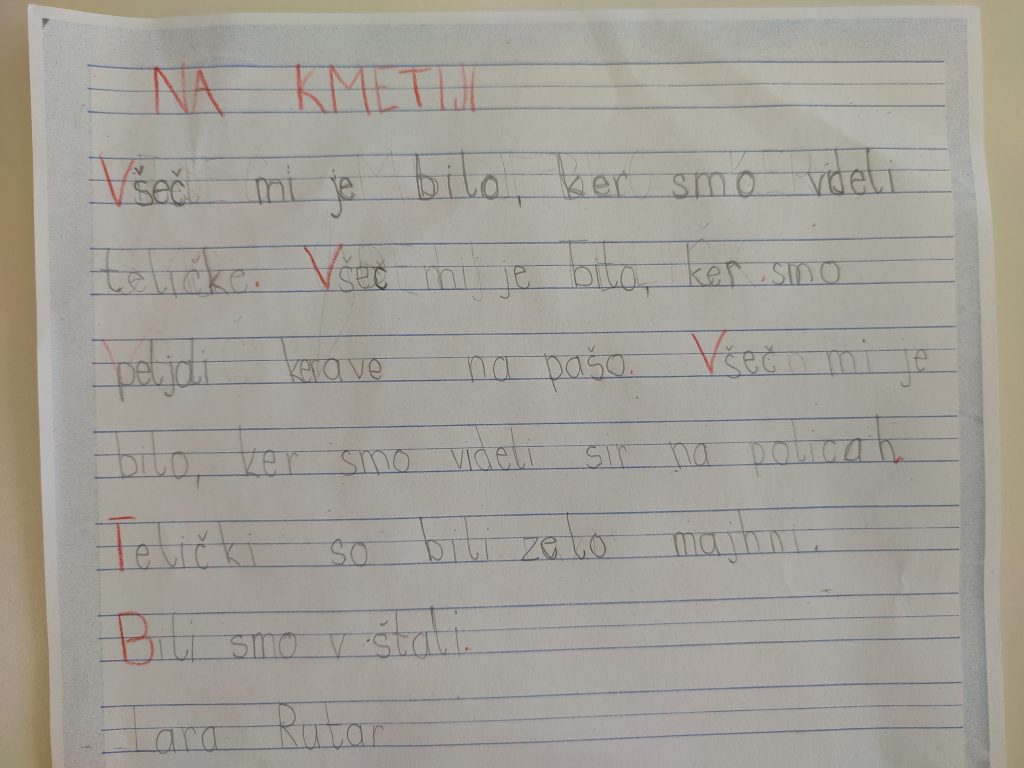 NA KMETIJI
Všeč mi je bilo, ker smo videli
teličke. Všeč mi je bilo, ker smo
peljdi kerave na pašo. Všeč mi je
bilo, ker smo videli sir na policah.
Telički so bili zelo majhni.
Bili smo v štali.
Lara Rutar